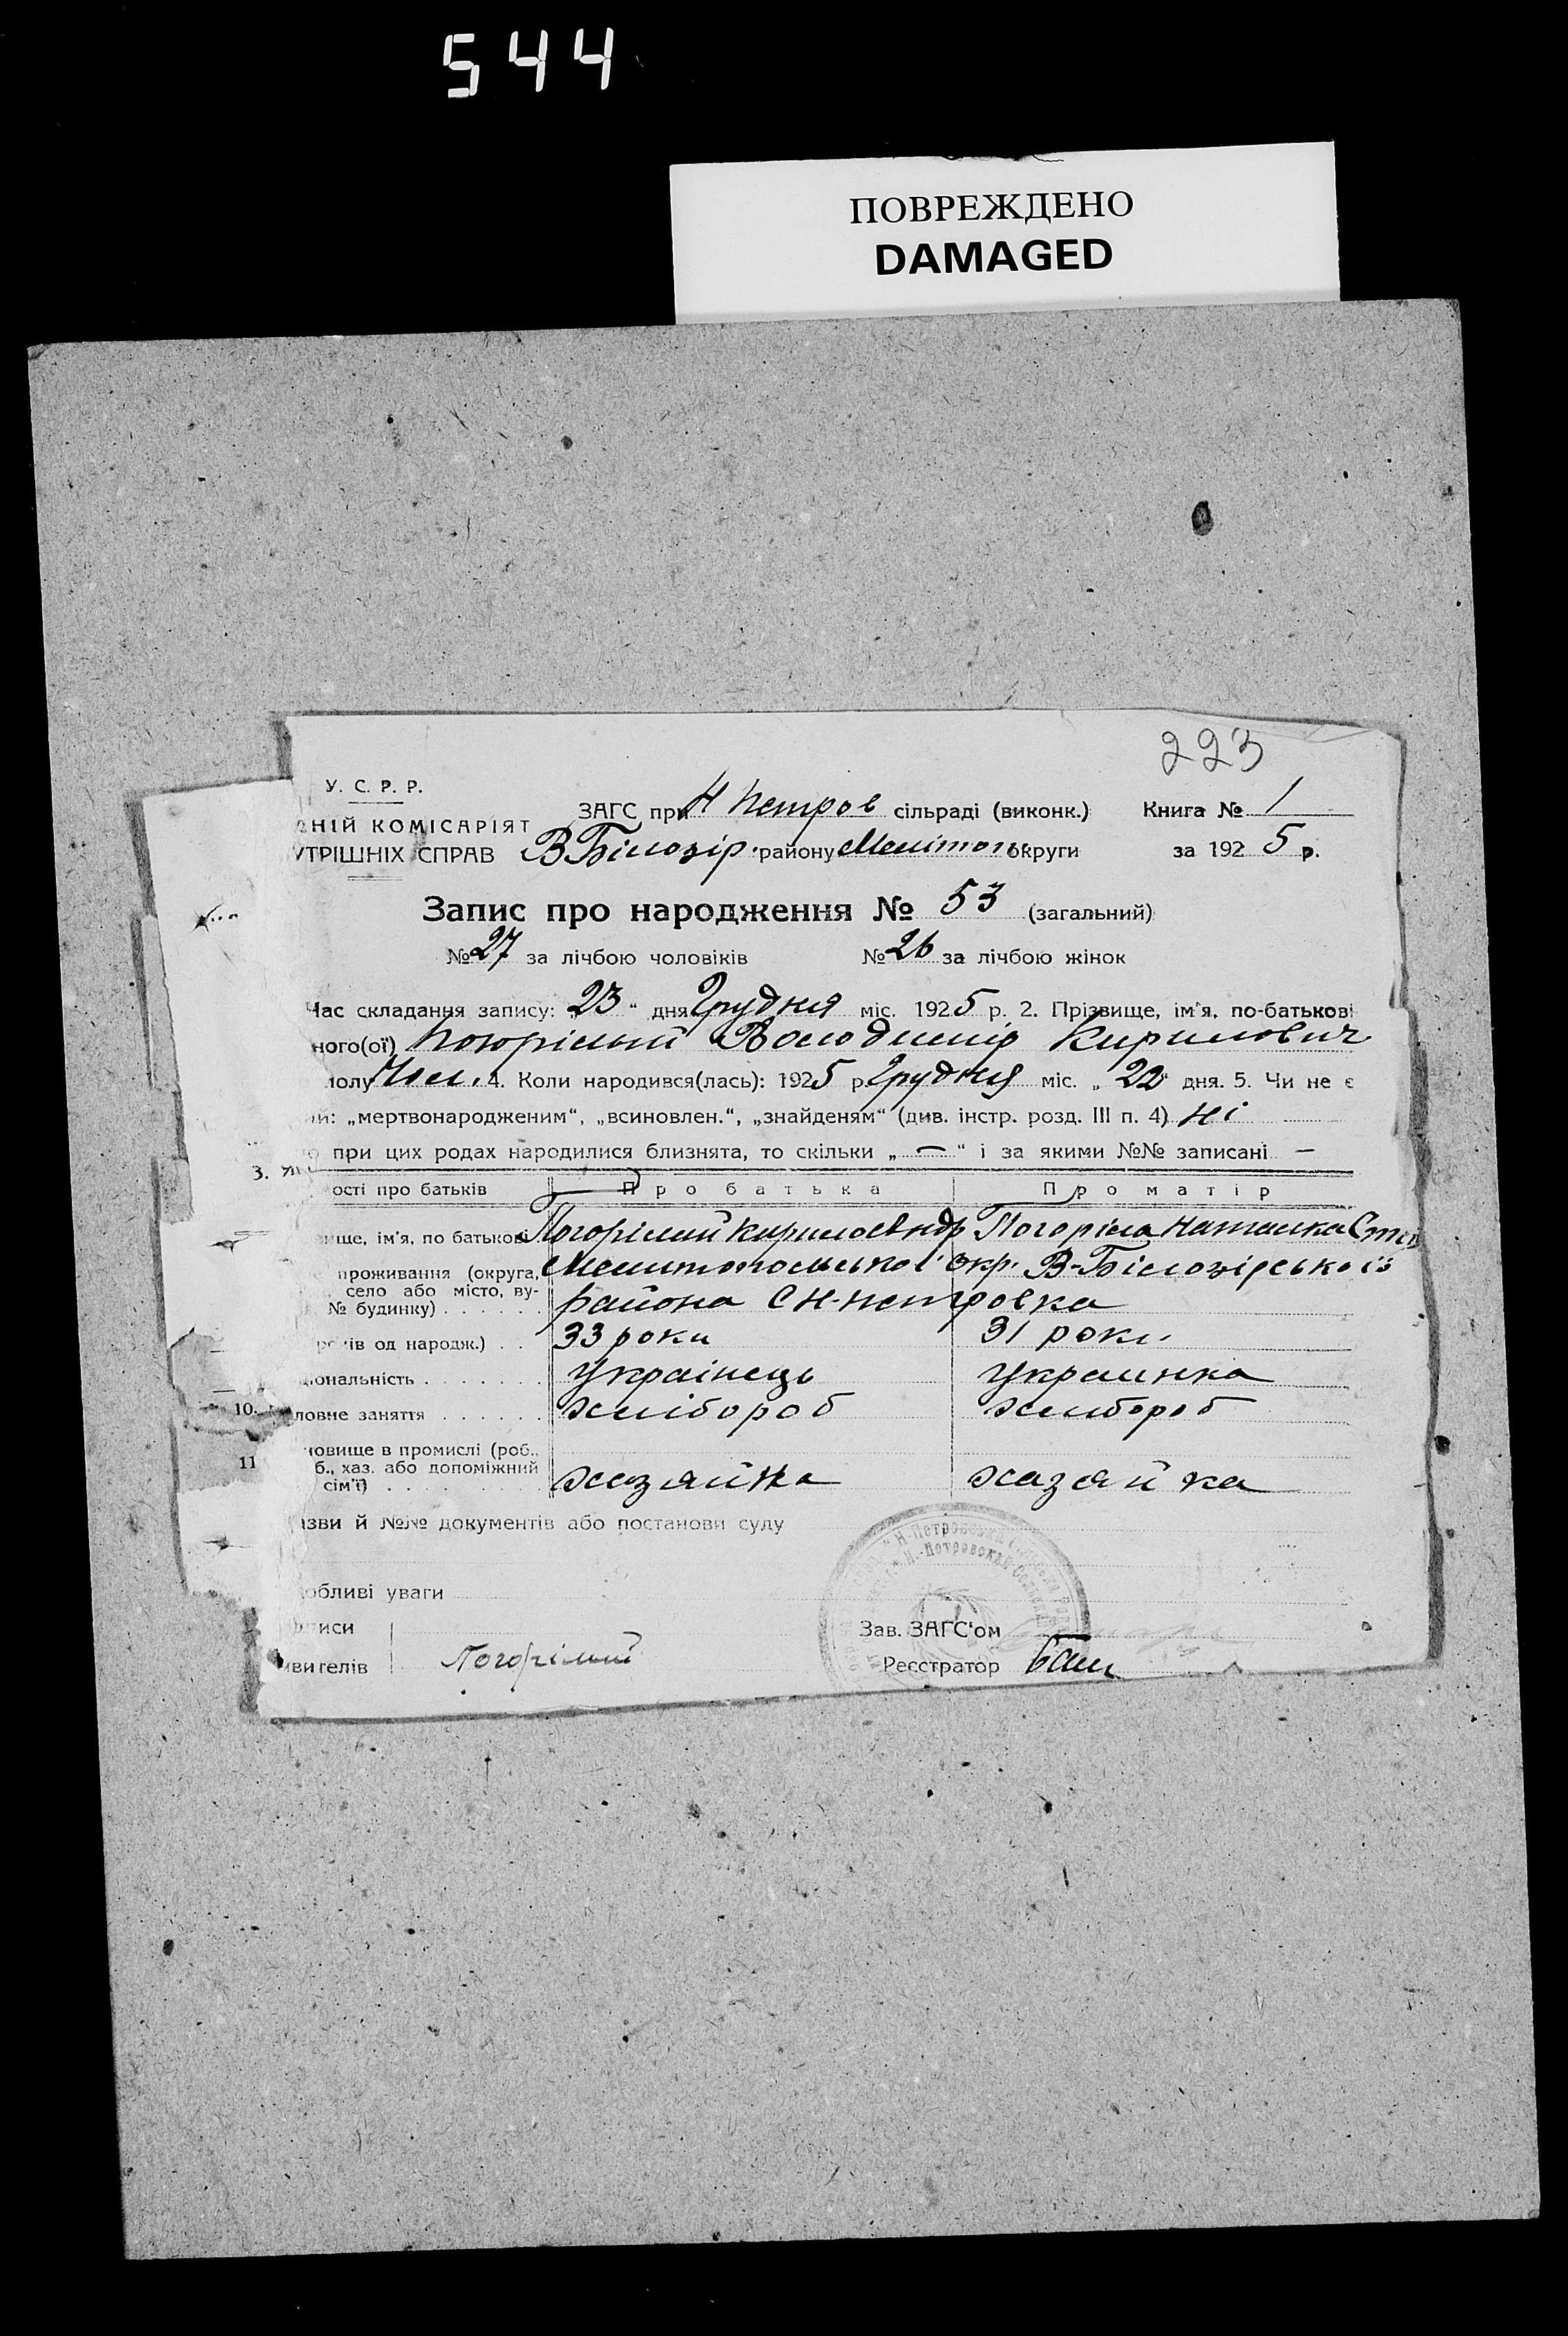 544
ПОВРЕЖДЕНО
DAMAGED
223
У. С. Р. Р.
ЗАГС при Н Петров сільраді (виконк.) Книга № 1
НІЙ КОМІСАРІЯТ
УТРІШНІХ СПРАВ В Білозір. району Мелітоп. округи за 1925 р.
Запис про народження № 53 (загальний)
№ 27 за лічбою чоловіків № 26 за лічбою жінок
Час складання запису: „23“ дня Грудня міс. 1925 р. 2. Прізвище, ім'я, по-батькові
ного(ої) Погорілий Володимір Кирилович
полу Чол. 4. Коли народився(лась): 1925 р. Грудня міс. „22“ дня. 5. Чи не є
ни: „мертвонародженим“, „всиновлен.“, „знайденям“ (див. інстр. розд. III п. 4) ні
при цих родах народилися близнята, то скільки „—“ і за якими №№ записані —
3.
ості про батьків Про батька Про матір
ище, ім'я, по батькові Погорілий Кирило Андр Погоріла Наталка Степ
проживання (округа, Мелитопольської Окр. В-Білозірської
село або місто, ву-
№ будинку) . . . . . . района С Н-Петровка
років од народж.) . . 33 роки 31 роки
ціональність . . . . . . . Українець Украинка
10. ловне заняття . . . . . . Хлібороб Хлибороб
новище в промислі (роб.,
11 б., хаз. або допоміжний
сім'ї) . . . . . . . Хозяйна хазяйка
азви й №№ документів або постанови суду
обливі уваги
писи Зав. ЗАГС'ом
ивителів Погорілий Реєстратор Баш